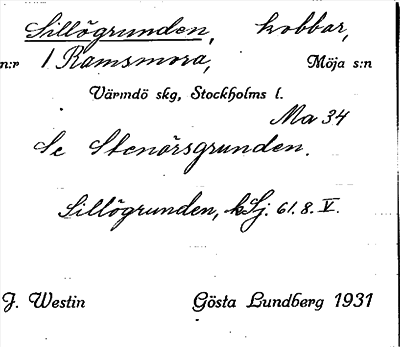 Sillögrunden, kobbar,
n:r 1 Ramsmora, Möja s:n
Värmdö skg, Stockholms l.
Ma 34
Se Stenörsgrunden.
Sillögrunden, Sj. 61. 8. V.
J. Westin Gösta Lundberg 1931